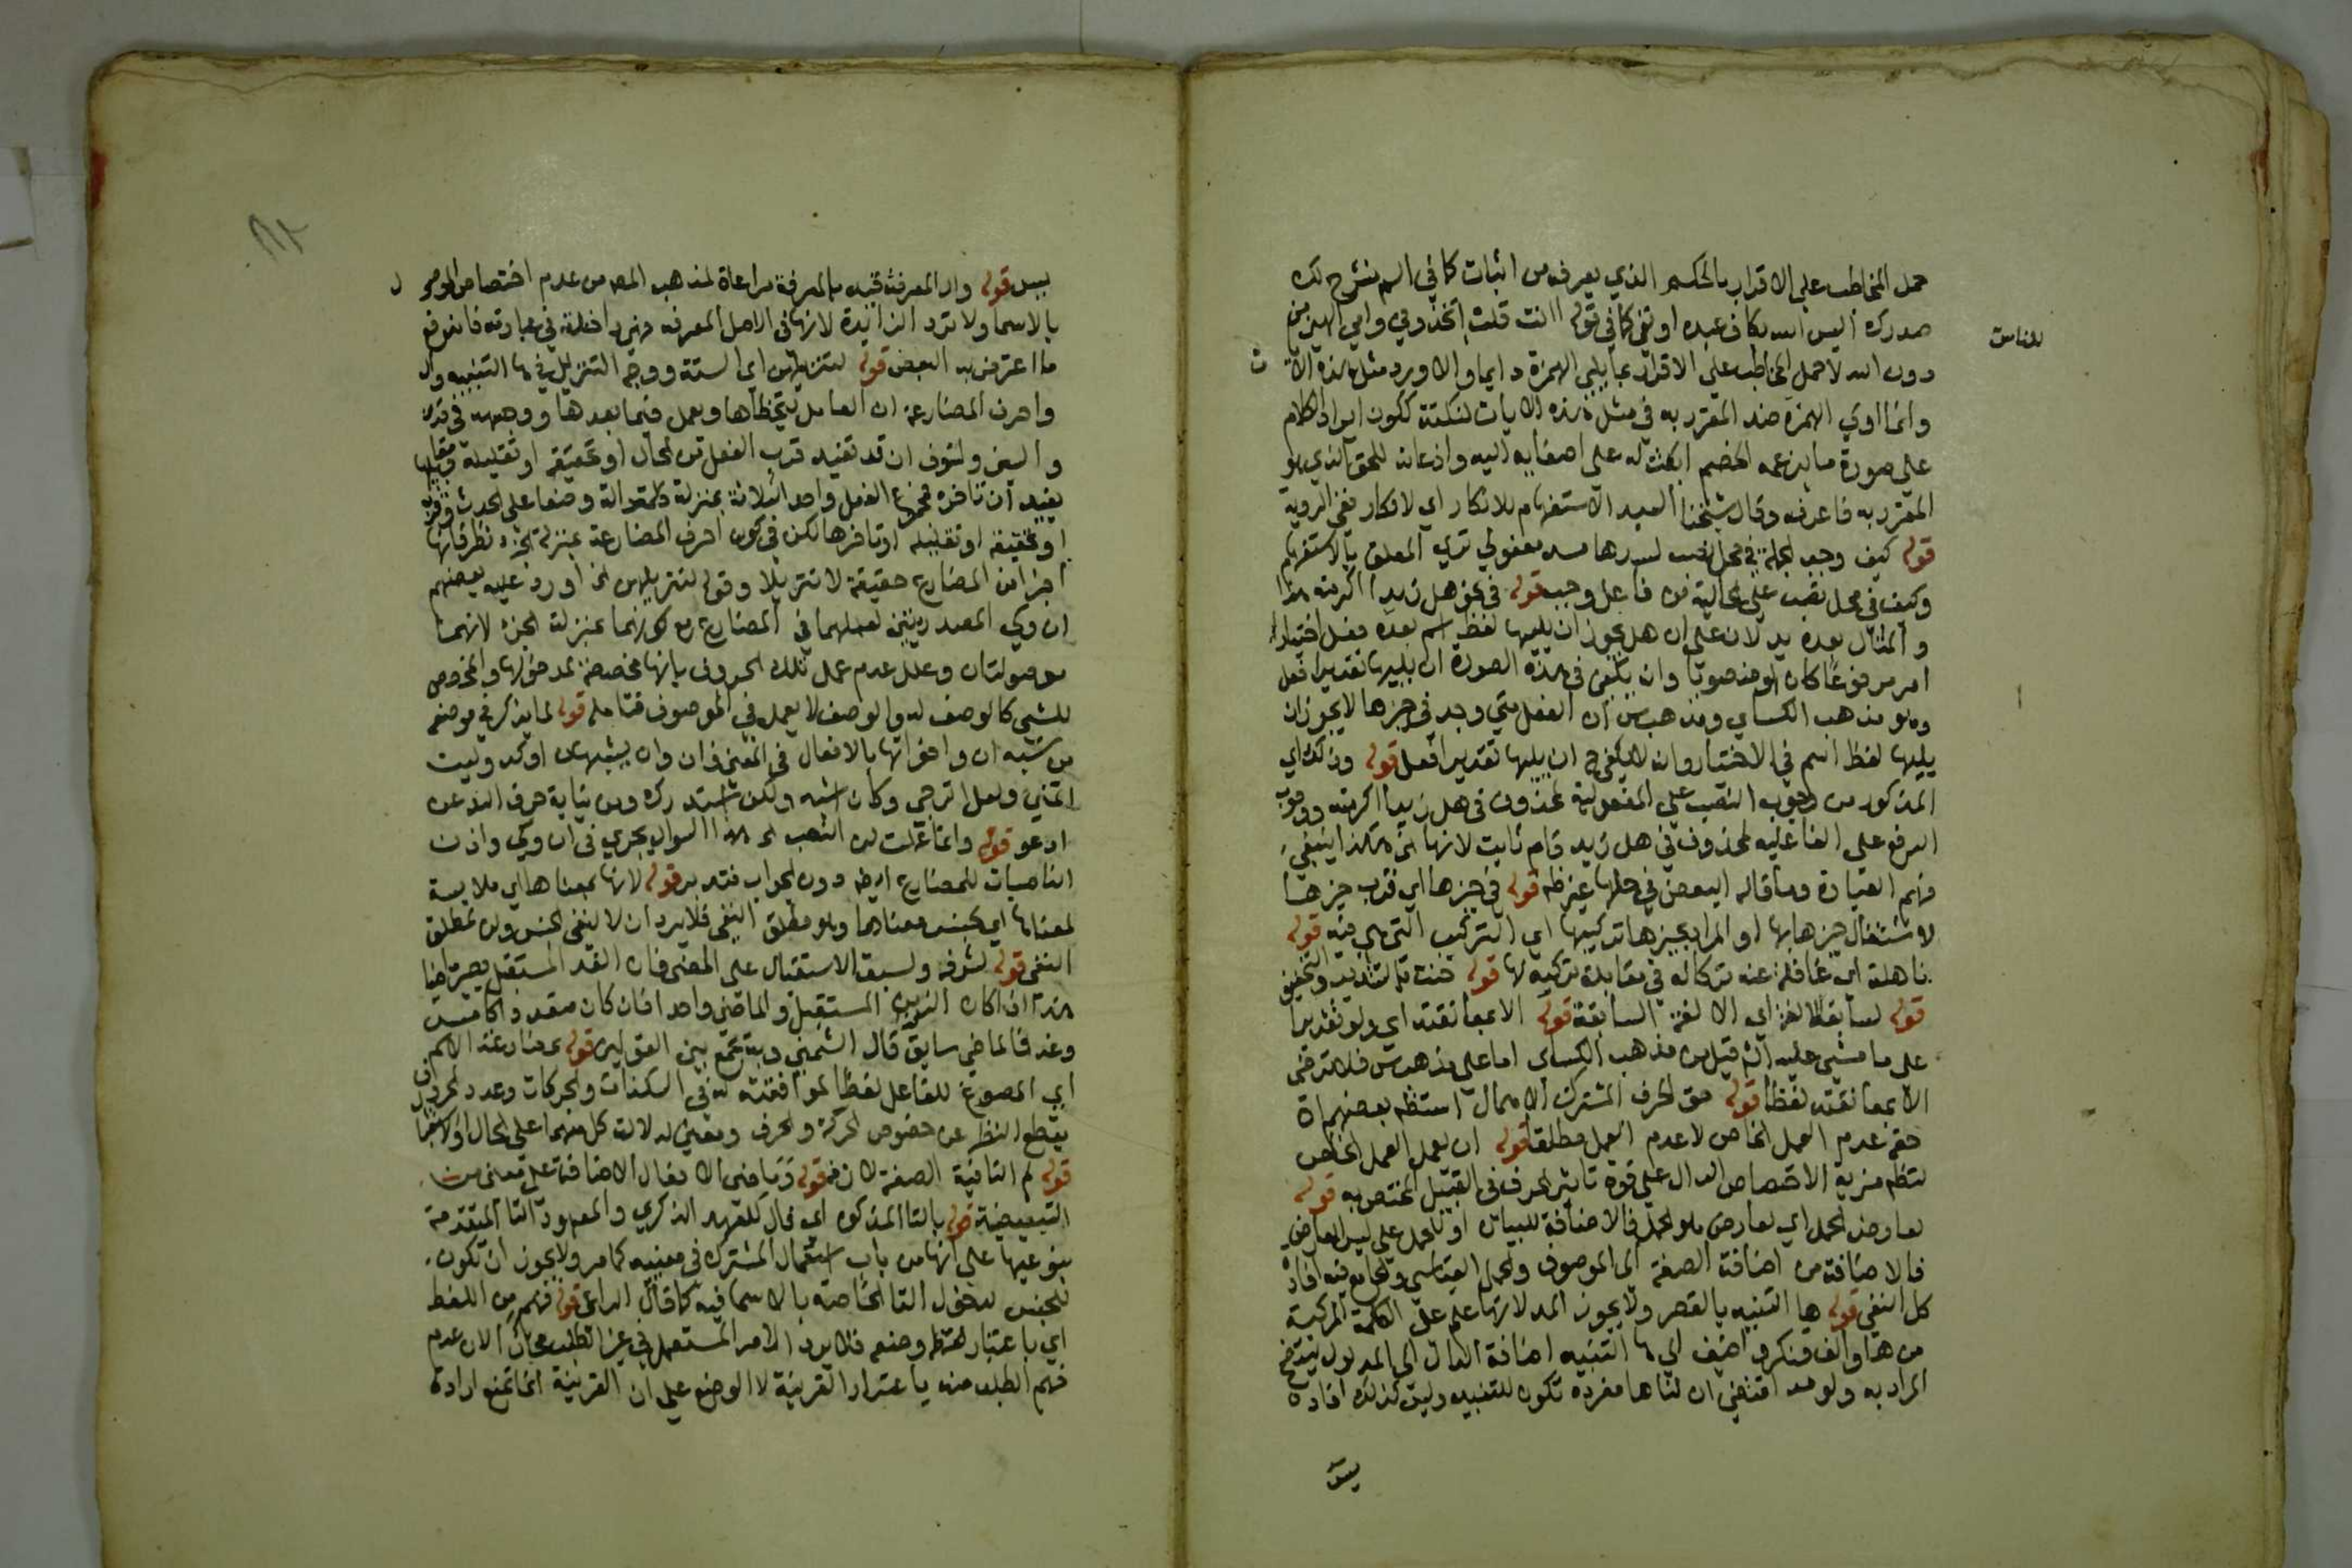 حمل المخاطب على الاقرار بالحكم الذي يعرفه من اثبات كما في الم نشرح لك
صدرك اليس الله بكاف عبده او نفي كما في قوله اانت قلت اتخذوني وامي الهين من
للناس
دون الله لا حمل المخاطب على الاقرار بما يلي الهمزة دايما والا ورد مثل هذه الا
ت
وانما اولي الهمزة ضد المقرر به في مثل هذه الايات لنكتة ككون ايراد الكلام
على صورة ما يزعمه الخصم ابعث له على اصغايه اليه واذعانه للحق الذي هو
المقرر به فاعرفه وقال شيخنا السيد الاستفهام للانكار اي لانكار نفي الروية
قوله كيف وجب الجملة في محل نصب لسدها مسد مفعولي ترى المعلق بالاستفهام
وكيف في محل نصب على الحالية من فاعل وجب قوله في نحو هل زيدا اكرمته هذا
والمثال بعده يدلان على ان هل يجوز ان يليها لفظ اسم بعده فعل اختيارا
امر مرفوعا كان او منصوبا وان يكفي في هذه الصورة ان يليها تقديرا فعل
وهو مذهب الكساي ومذهب س ان الفعل متى وجد في حيزها لا يجوز ان
يليها لفظ اسم في الاختيار وانه لا يكفي ح ان يليها تقديرا فعل قوله وذلك اي
المذكور من وجوب النصب على المفعولية لمحذوف في هل زيدا اكرمته ووجوب
الرفع على الفاعلية لمحذوف في هل زيد قام ثابت لانها الخ هكذا ينبغي
فهم العبارة وما قاله البعض في حلها غير ظه قوله في حيزها اي قرب حيزها
لاشتغال حيزها بها او المراد بحيزها تركيبها اي التركيب التي هي فيه قوله
ذاهلة اي غافلة عنه تركا له في مقابلة تركه لها قوله حنت بالتشديد والتخفيف
قوله لسابق الالفة اي الالفة السابقة قوله الا بمعانقته اي ولو تقديرا
على ما مشى عليه الش قبل من مذهب الكساي اما على مذهب س فلا ترضى
الا بمعانقته لفظا قوله حق الحرف المشترك الاهمال استظه بعضهم ان
حقه عدم العمل الخاص لا عدم العمل مطلقا قوله ان يعمل العمل الخاص
لتظهر مزية الاختصاص الدال على قوة تاثير الحرف في القبيل المختص به قوله
لعارض الحمل اي لعارض هو الحمل فالاضافة للبيان او للحمل على ليس العارض
فالاضافة من اضافة الصفة الى الموصوف والحمل القياس والجامع فيه افادة
كل النفي قوله ها التنبيه بالقصر ولا يجوز المد لانها علم على الكلمة المركبة
من ها والف فنكرة اضيف الى ها التنبيه اضافة الدال الى المدلول ليتضح
المراد به ولو مد اقتضى ان لنا هاء مفردة تكون للتنبيه وليس كذلك افاده
يس
يس قوله وال المعرفة قيد بالمعرفة مراعاة لمذهب المص من عدم اختصاص الموصو
ل
بالاسما ولا ترد الزائدة لانها في الاصل المعرفة فهي داخلة في عبارته فاندفع
ما اعترض به البعض قوله لتنزيلهن اي الستة ووجه التنزيل في ها التنبيه وال
واحرف المضارعة ان العامل يتخطاها ويعمل فيما بعدها ووجهه في قد
والسين وسوف ان قد تفيد قرب الفعل من الحال او تحقيقه او تقليله
يفيد ان تاخره فمجموع الفعل واحد الثلاثة بمنزلة كلمة دالة وضعا على الحدث وقربه
او تحقيقه او تقليله او تاخره لكن في كون احرف المضارعة بمنزلة الجزء نظر فانها
اجزا من المضارع حقيقة لا تنزيلا وقوله لتنزيلهن الخ اورد عليه بعضهم
ان وكي المصدريتين لعملهما في المضارع مع كونهما بمنزلة الجزء لانهما
موصولتان وعلل عدم عمل تلك الحروف بانها مخصصة لمدخولها والمخصص
للشي كالوصف له والوصف لا يعمل في الموصوف فتامله قوله لما يذكر في موضعه
من شبه ان واخواتها بالافعال في المعنى فان وان يشبهان اوكد وليت
اتمنى ولعل اترجى وكان اشبه ولكن استدرك ومن نيابة حرف الندا عن
ادعو قوله وانما عملت لن النصب الخ هذا السوال يجري في ان وكي واذن
الناصبات للمضارع ايضا دون الجواب فتدبر قوله لانها بمعناها اي ملابسة
لمعناها اي لجنس معناها وهو مطلق النفي فلا يرد ان لا لنفي الجنس ولن لمطلق
النفي قوله لشرفه ولسبق الاستقبال على المضي فان الغد المستقبل يصير ماضيا
هذا اذا كان الزمن المستقبل والماضي واحدا فان كان متعددا كامس
وغد فالماضي سابق قال الشمني وبه يجمع بين القولين قوله مضارعة الاسم
اي المصوغ للفاعل لفظا لموافقته له في السكنات والحركات وعدد الحروف
بقطع النظر عن خصوص الحركة والحرف ومعنى لدلالة كل منهما على الحال او الاستقبال
قوله لم النافية الصفة لان فم قوله وماضي الافعال الاضافة على معنى من
التبعيضية قوله بالتا المذكورة اي فال للعهد الذكري والمعهود التا المتقدمة
بنوعيها على انها من باب استعمال المشترك في معنييه كما مر ولا يجوز ان تكون
للجنس لدخول التا الخاصة بالاسما فيه كما قال الراعي قوله فهم من اللفظ
اي باعتبار وضعه فلا يرد الامر المستعمل في غير الطلب مجازا لان عدم
فهم الطلب منه باعتبار القرينة لا الوضع على ان القرينة انما تمنع ارادة